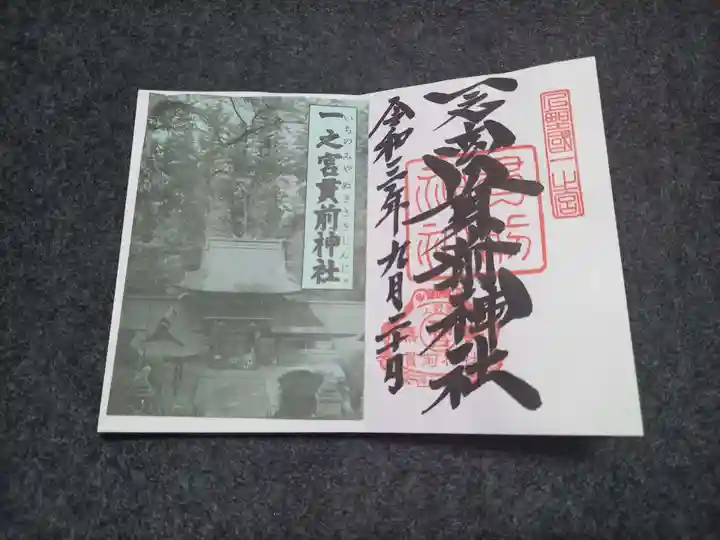 一之宮貫前神社
いちのみやぬきさきじんじゃ
上野國一之宮
一之宮貫前神社
令和三年九月二十日